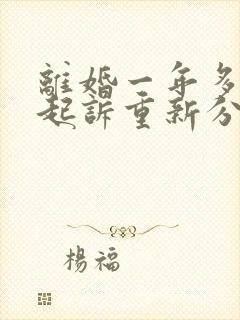 離婚一年多
起訴重新分
楊福